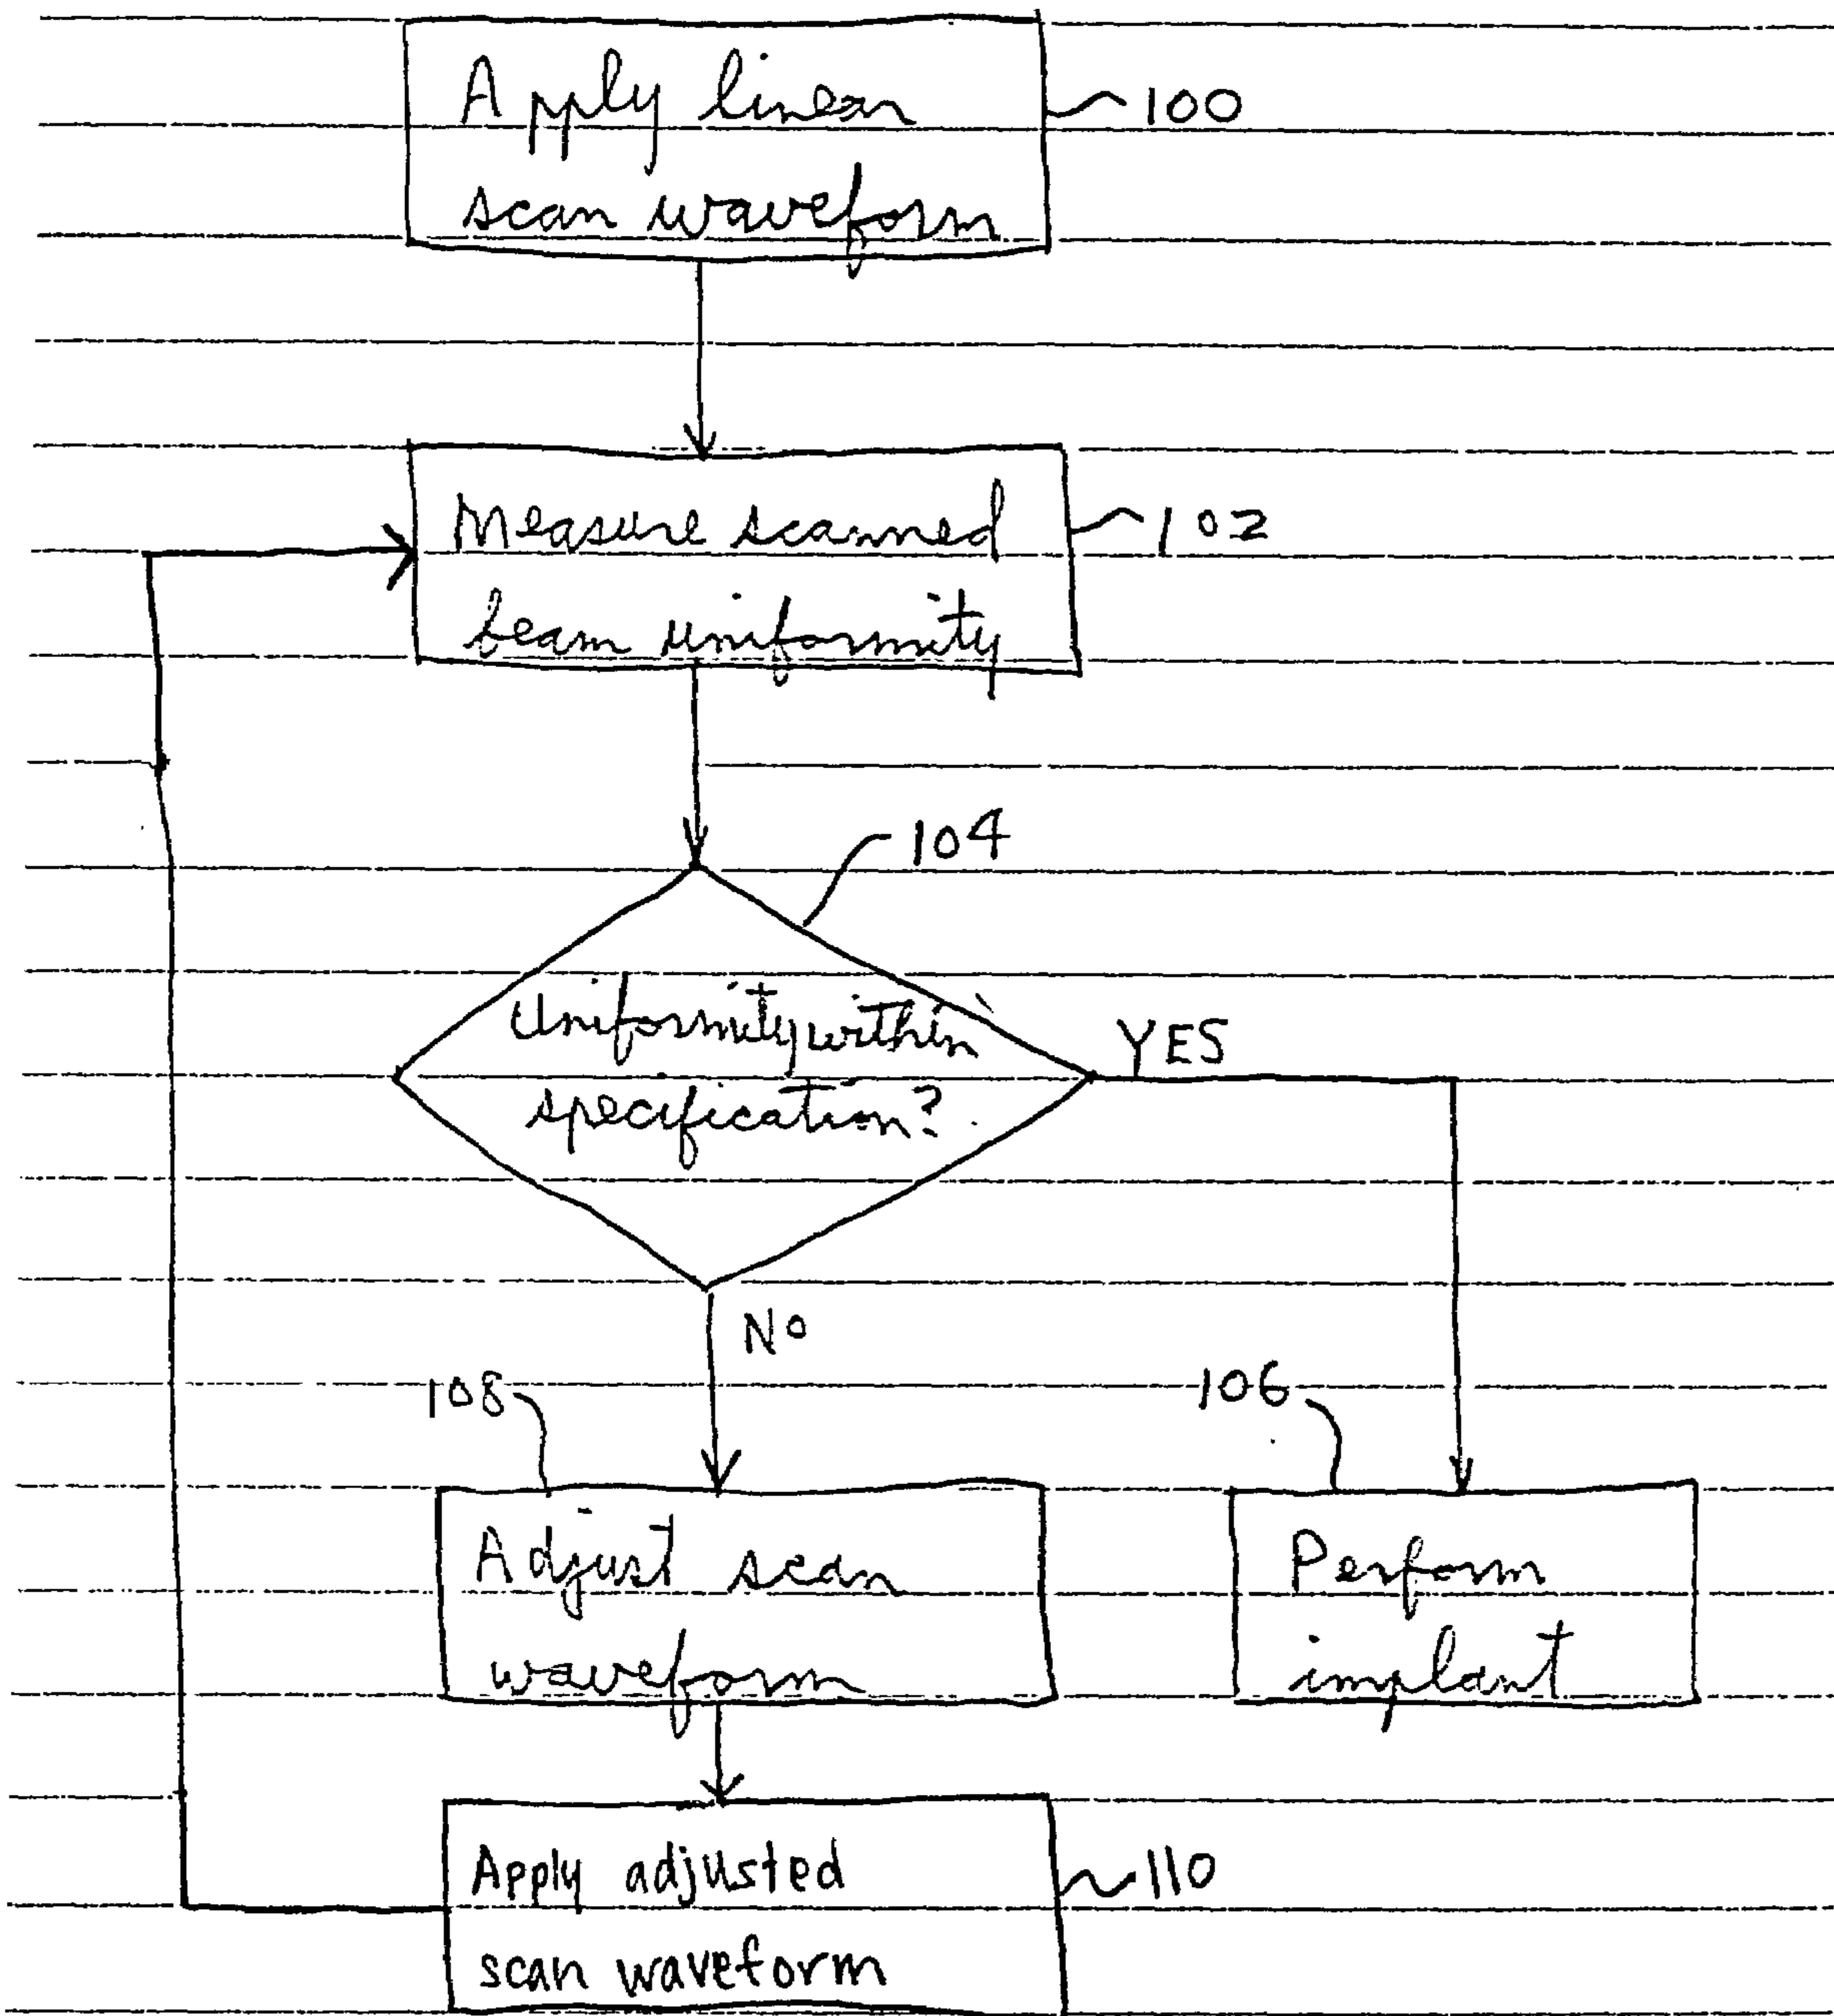 Apply linear
scan waveform
100
Measure scanned
beam uniformity
102
104
Uniformity within
specification?
YES
No
108
106
Adjust scan
waveform
Perform
implant
Apply adjusted
scan waveform
110